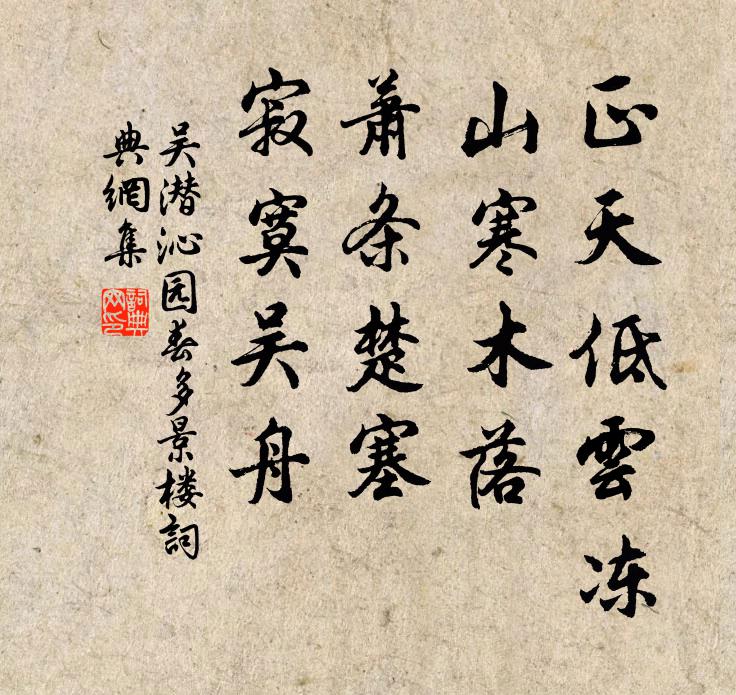 正天低雲冻
山寒木落
萧条楚塞
寂寞吴舟
吴潜沁园春多景楼詞
典網集
詞典網印